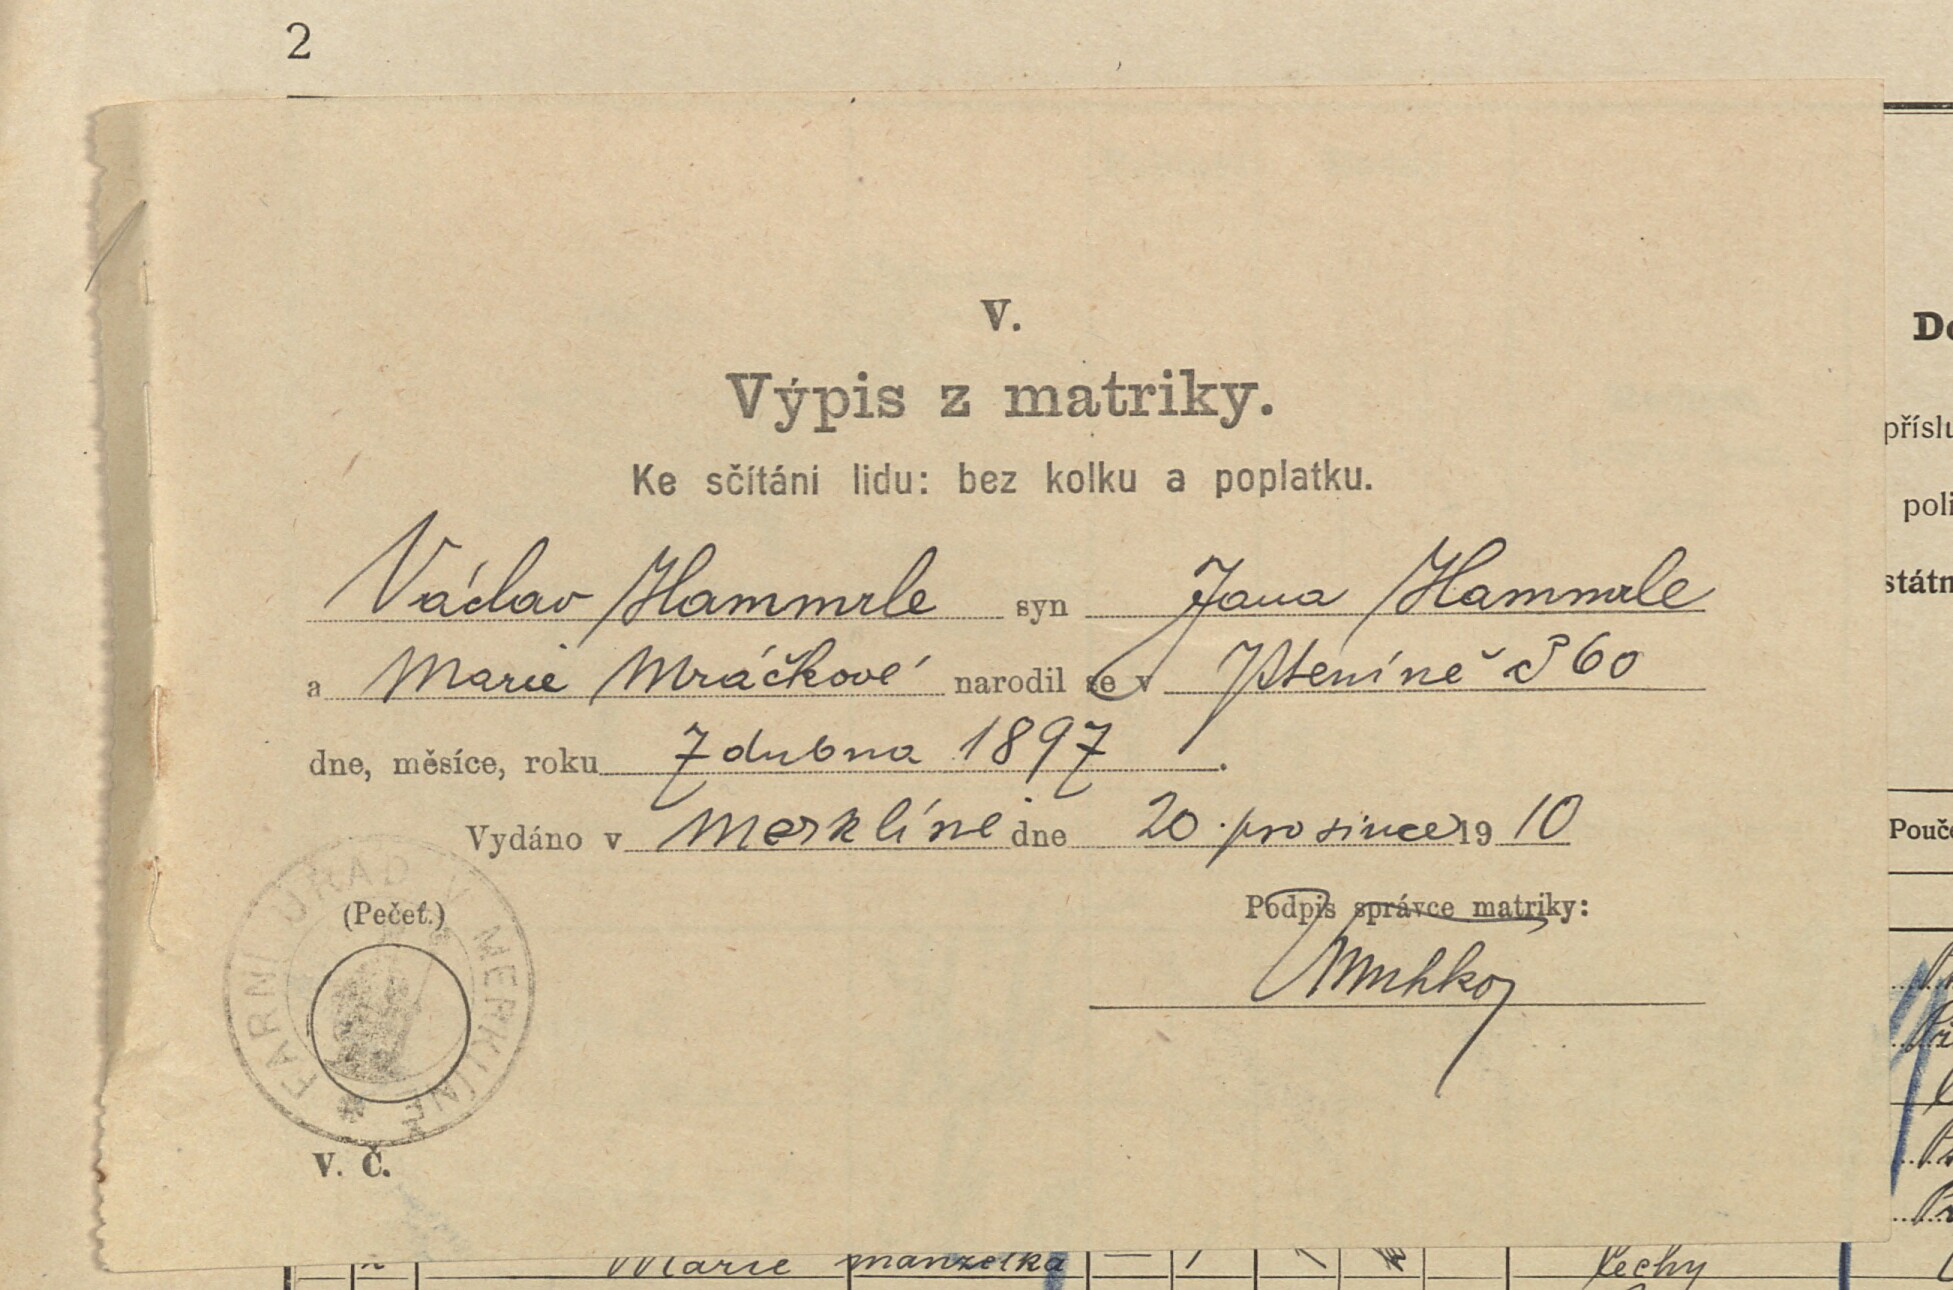 2
V.
Výpis z matriky.
Ke sčítání lidu: bez kolku a poplatku.
Václav Hammrle syn Jana Hammrle
a Marie Mráčkové narodil se v Ptenině č 60
dne, měsíce, roku 7 dubna 1897.
Vydáno v Merklíně dne 20. prosince 1910
(Pečeť.)
Podpis správce matriky:
FARNÍ ÚŘAD V MERKLÍNĚ
V. Č.
Marie manželka
Čechy